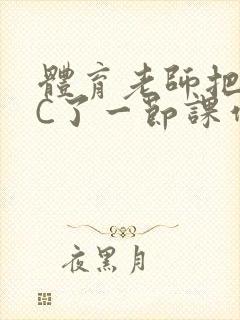 體育老師把
C了一節課
夜黑月